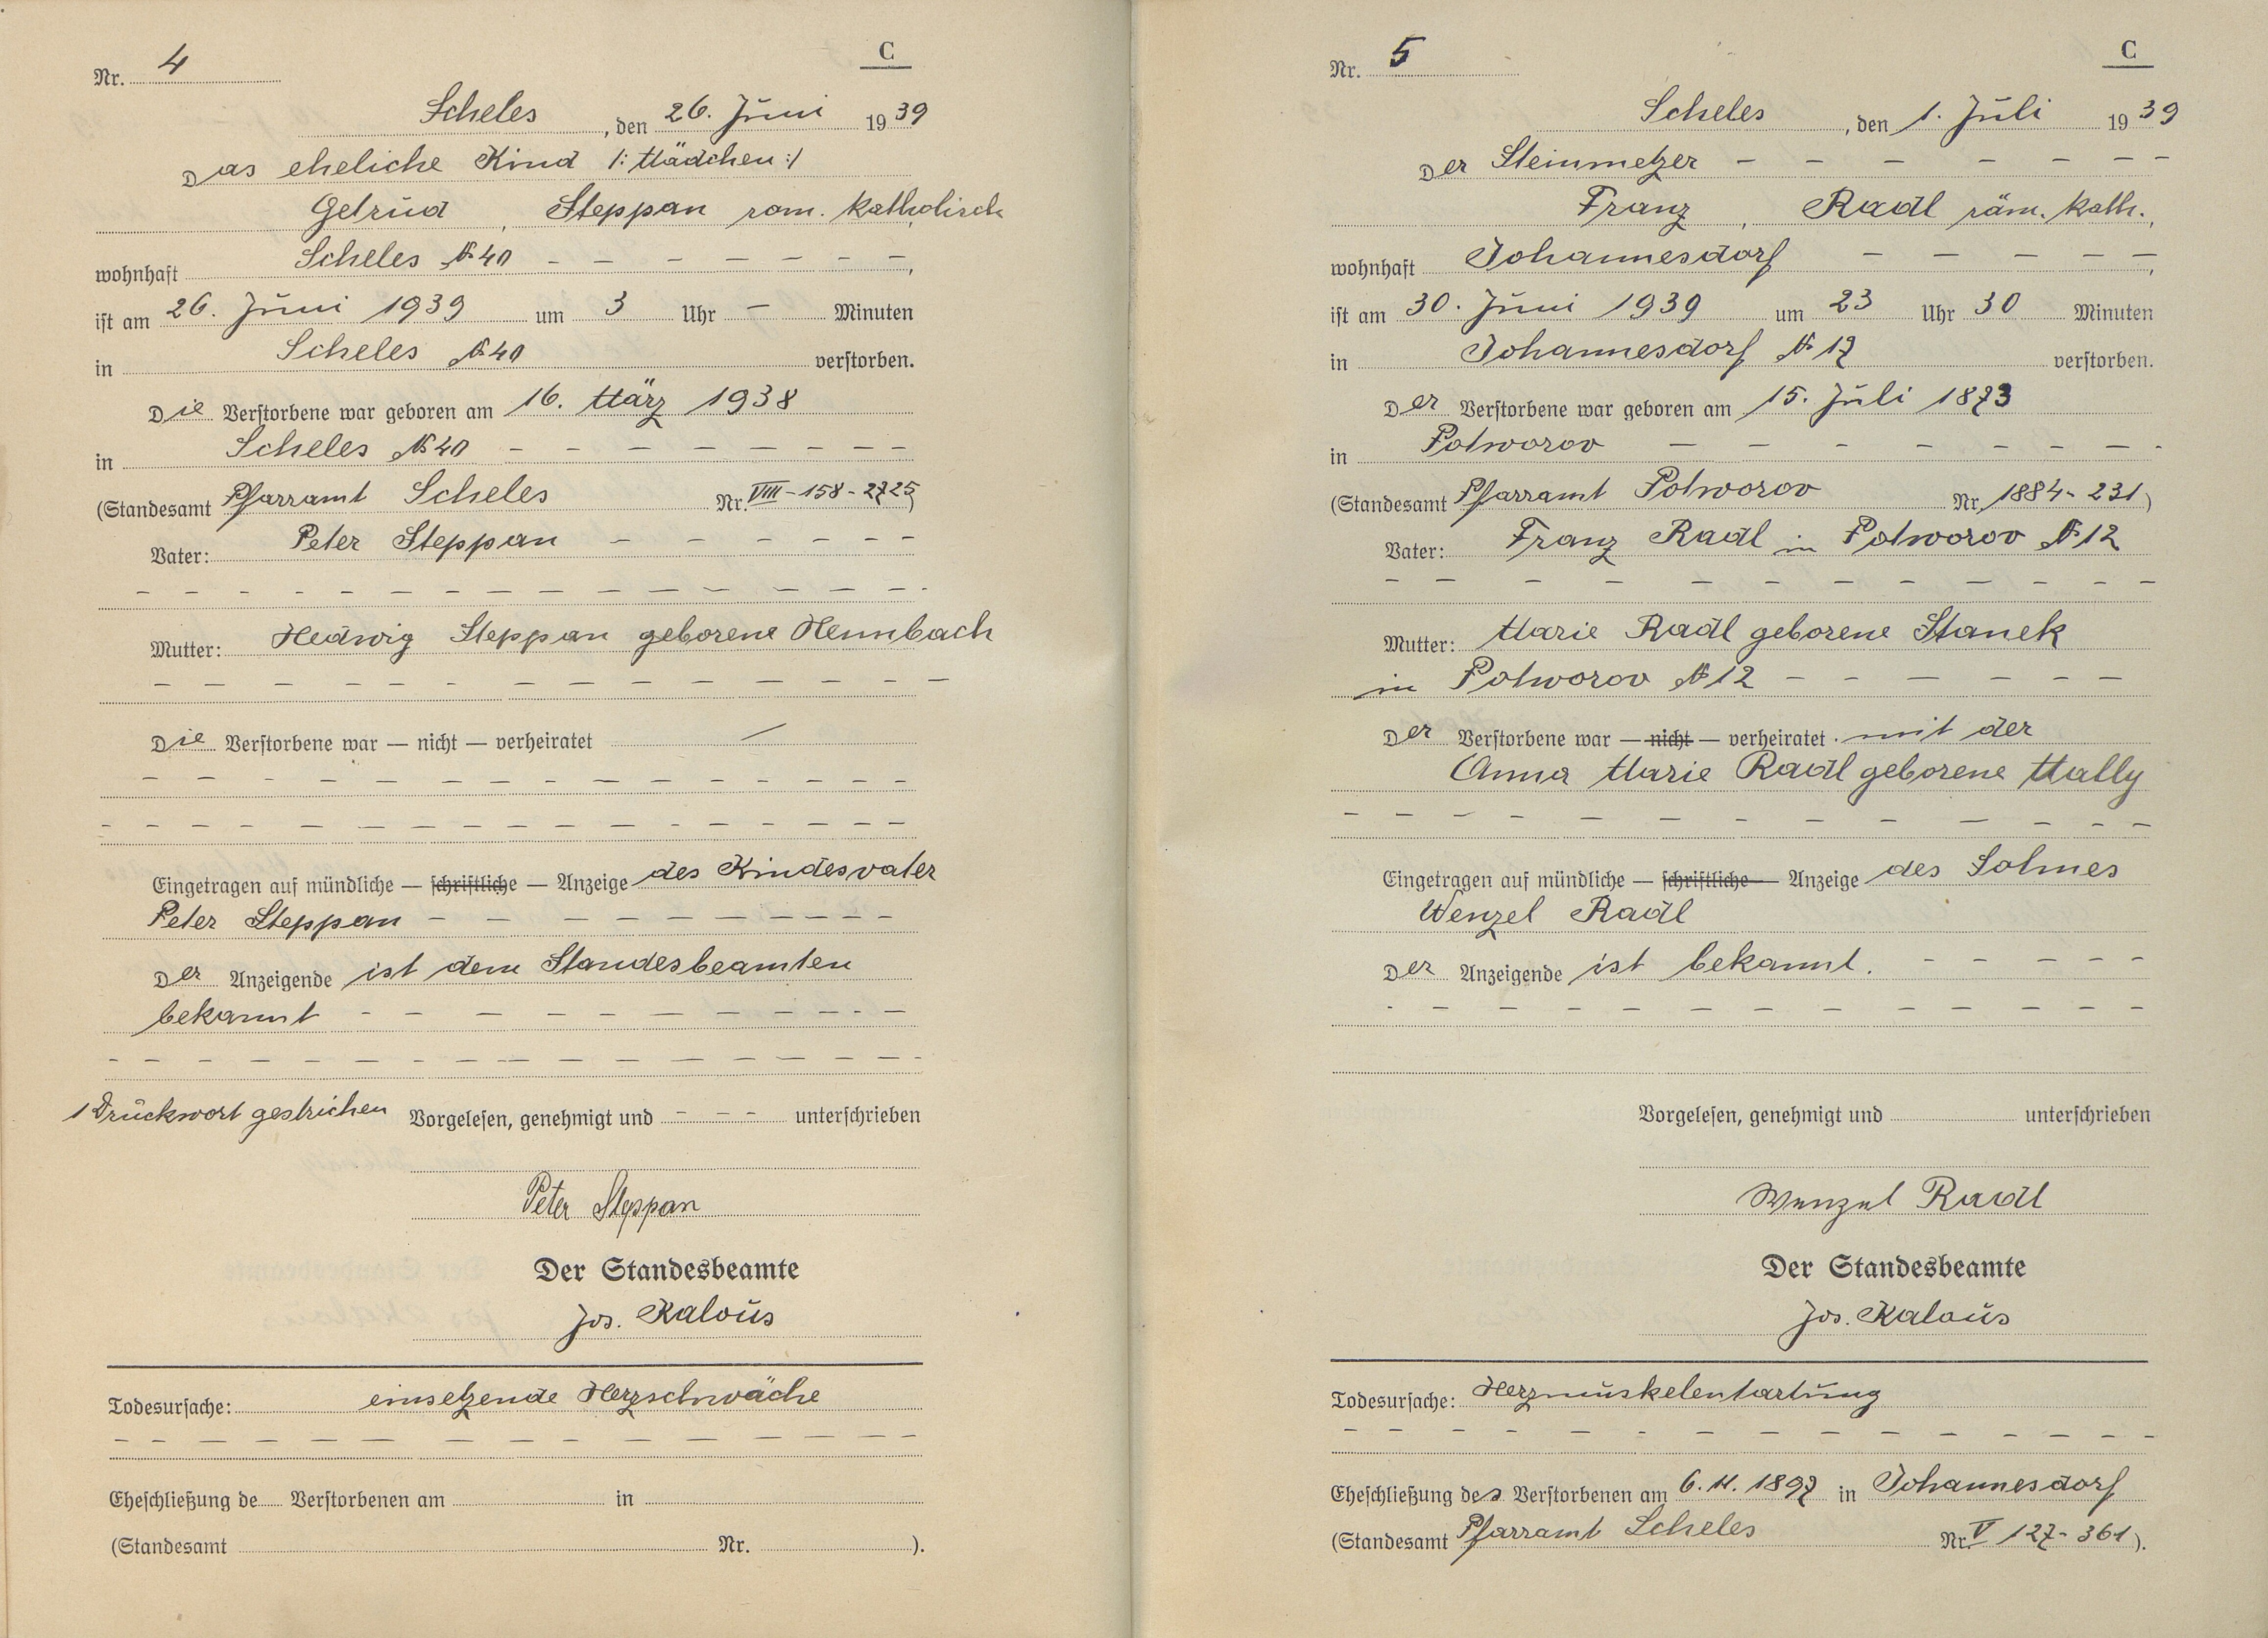 Nr. 4
C
Scheles, den 26. Juni 1939
Das eheliche Kind /: Mädchen :/
Getrud, Steppan röm. katholisch,
wohnhaft Scheles № 40 – – – – – – –,
ist am 26. Juni 1939 um 3 Uhr – Minuten
in Scheles № 40 verstorben.
Die Verstorbene war geboren am 16. März 1938
in Scheles № 40 – – – – – – – –
(Standesamt Pfarramt Scheles Nr. VIII-158-2725)
Vater: Peter Steppan – – – – – –
Mutter: Hedwig Steppan geborene Hennbach
Die Verstorbene war — nicht — verheiratet —
Eingetragen auf mündliche — schriftliche — Anzeige des Kindesvater
Peter Steppan – – – – – – – – – –
Der Anzeigende ist dem Standesbeamten
bekannt – – – – – – – – – –
1 Druckwort gestrichen Vorgelesen, genehmigt und – – – unterschrieben
Peter Steppan
Der Standesbeamte
Jos. Kalous
Todesursache: einsetzende Herzschwäche
Eheschließung de Verstorbenen am in
(Standesamt Nr. ).
Nr. 5
C
Scheles, den 1. Juli 1939
Der Steinmetzer – – – – – – –
Franz, Radl röm. kath.,
wohnhaft Johannesdorf – – – – –,
ist am 30. Juni 1939 um 23 Uhr 30 Minuten
in Johannesdorf № 17 verstorben.
Der Verstorbene war geboren am 15. Juli 1873
in Potworov – – – – – – – –
(Standesamt Pfarramt Potworov Nr. 1884-231)
Vater: Franz Radl in Potworov № 12
Mutter: Marie Radl geborene Stanek
in Potworov № 12 – – – – – –
Der Verstorbene war — nicht — verheiratet mit der
Anna Marie Radl geborene Mally
Eingetragen auf mündliche — schriftliche — Anzeige des Sohnes
Wenzel Radl
Der Anzeigende ist bekannt. – – – – –
Vorgelesen, genehmigt und unterschrieben
Wenzel Radl
Der Standesbeamte
Jos. Kalous
Todesursache: Herzmuskelentartung
Eheschließung des Verstorbenen am 6. 11. 1897 in Johannesdorf
(Standesamt Pfarramt Scheles Nr. V 127-361).